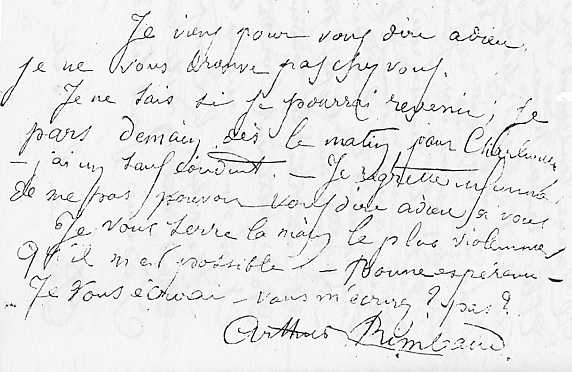 Je viens pour vous dire adieu,
je ne vous trouve pas chez vous.
Je ne sais si je pourrai revenir ; je
pars demain, dès le matin, pour Charleville
– j'ai un sauf conduit. – Je regrette infiniment
de ne pas pouvoir vous dire adieu à vous
Je vous serre la main le plus violemment
qu'il m'est possible – Bonne espérance –
Je vous écrirai – vous m'écrirez ? pas ?
Arthur Rimbaud.